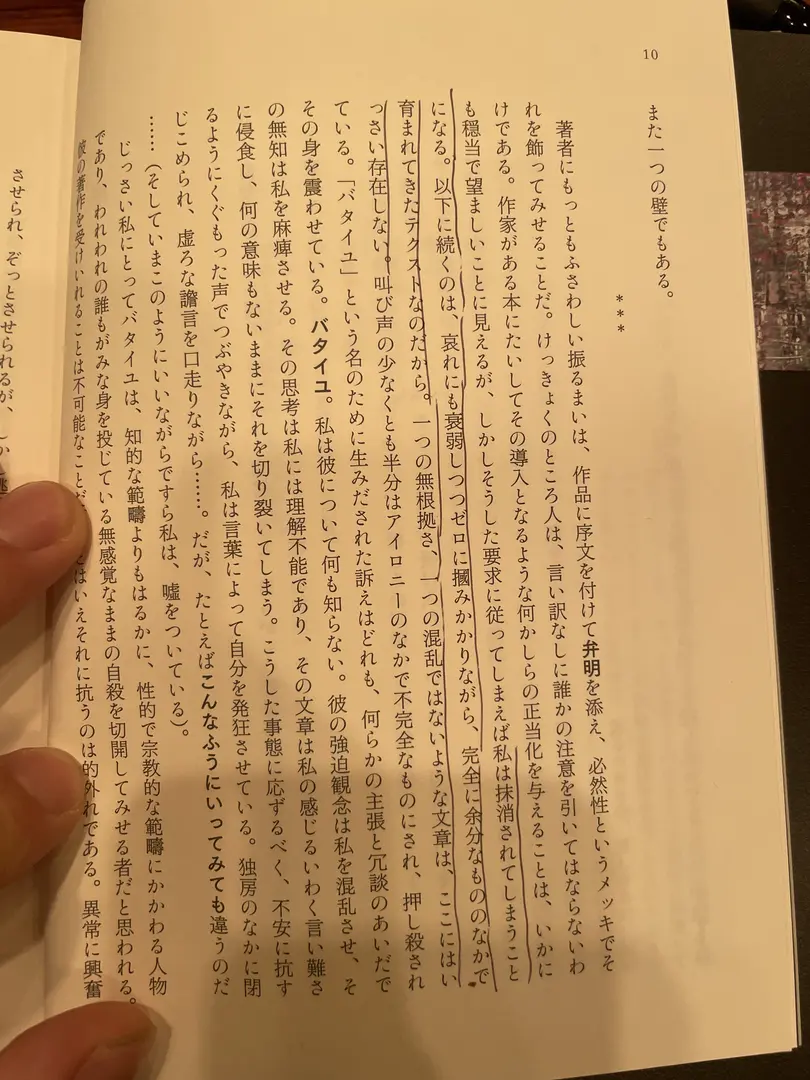 10
また一つの壁でもある。
＊＊＊
著者にもっともふさわしい振るまいは、作品に序文を付けて弁明を添え、必然性というメッキでそ
れを飾ってみせることだ。けっきょくのところ人は、言い訳なしに誰かの注意を引いてはならないわ
けである。作家がある本にたいしてその導入となるような何かしらの正当化を与えることは、いかに
も穏当で望ましいことに見えるが、しかしそうした要求に従ってしまえば私は抹消されてしまうこと
になる。以下に続くのは、哀れにも衰弱しつつゼロに摑みかかりながら、完全に余分なもののなかで
育まれてきたテクストなのだから。一つの無根拠さ、一つの混乱ではないような文章は、ここにはい
っさい存在しない。叫び声の少なくとも半分はアイロニーのなかで不完全なものにされ、押し殺され
ている。「バタイユ」という名のために生みだされた訴えはどれも、何らかの主張と冗談のあいだで
その身を震わせている。バタイユ。私は彼について何も知らない。彼の強迫観念は私を混乱させ、そ
の無知は私を麻痺させる。その思考は私には理解不能であり、その文章は私の感じるいわく言い難さ
に侵食し、何の意味もないままにそれを切り裂いてしまう。こうした事態に応ずるべく、不安に抗す
るようにくぐもった声でつぶやきながら、私は言葉によって自分を発狂させている。独房のなかに閉
じこめられ、虚ろな譫言を口走りながら……。だが、たとえばこんなふうにいってみても違うのだ
……（そしていまこのようにいいながらですら私は、嘘をついている）。
じっさい私にとってバタイユは、知的な範疇よりもはるかに、性的で宗教的な範疇にかかわる人物
であり、われわれの誰もがみな身を投じている無感覚なままの自殺を切開してみせる者だと思われる。
彼の著作を受けいれることは不可能なことだ はいえそれに抗うのは的外れである。異常に興奮
させられ、ぞっとさせられるが、しか